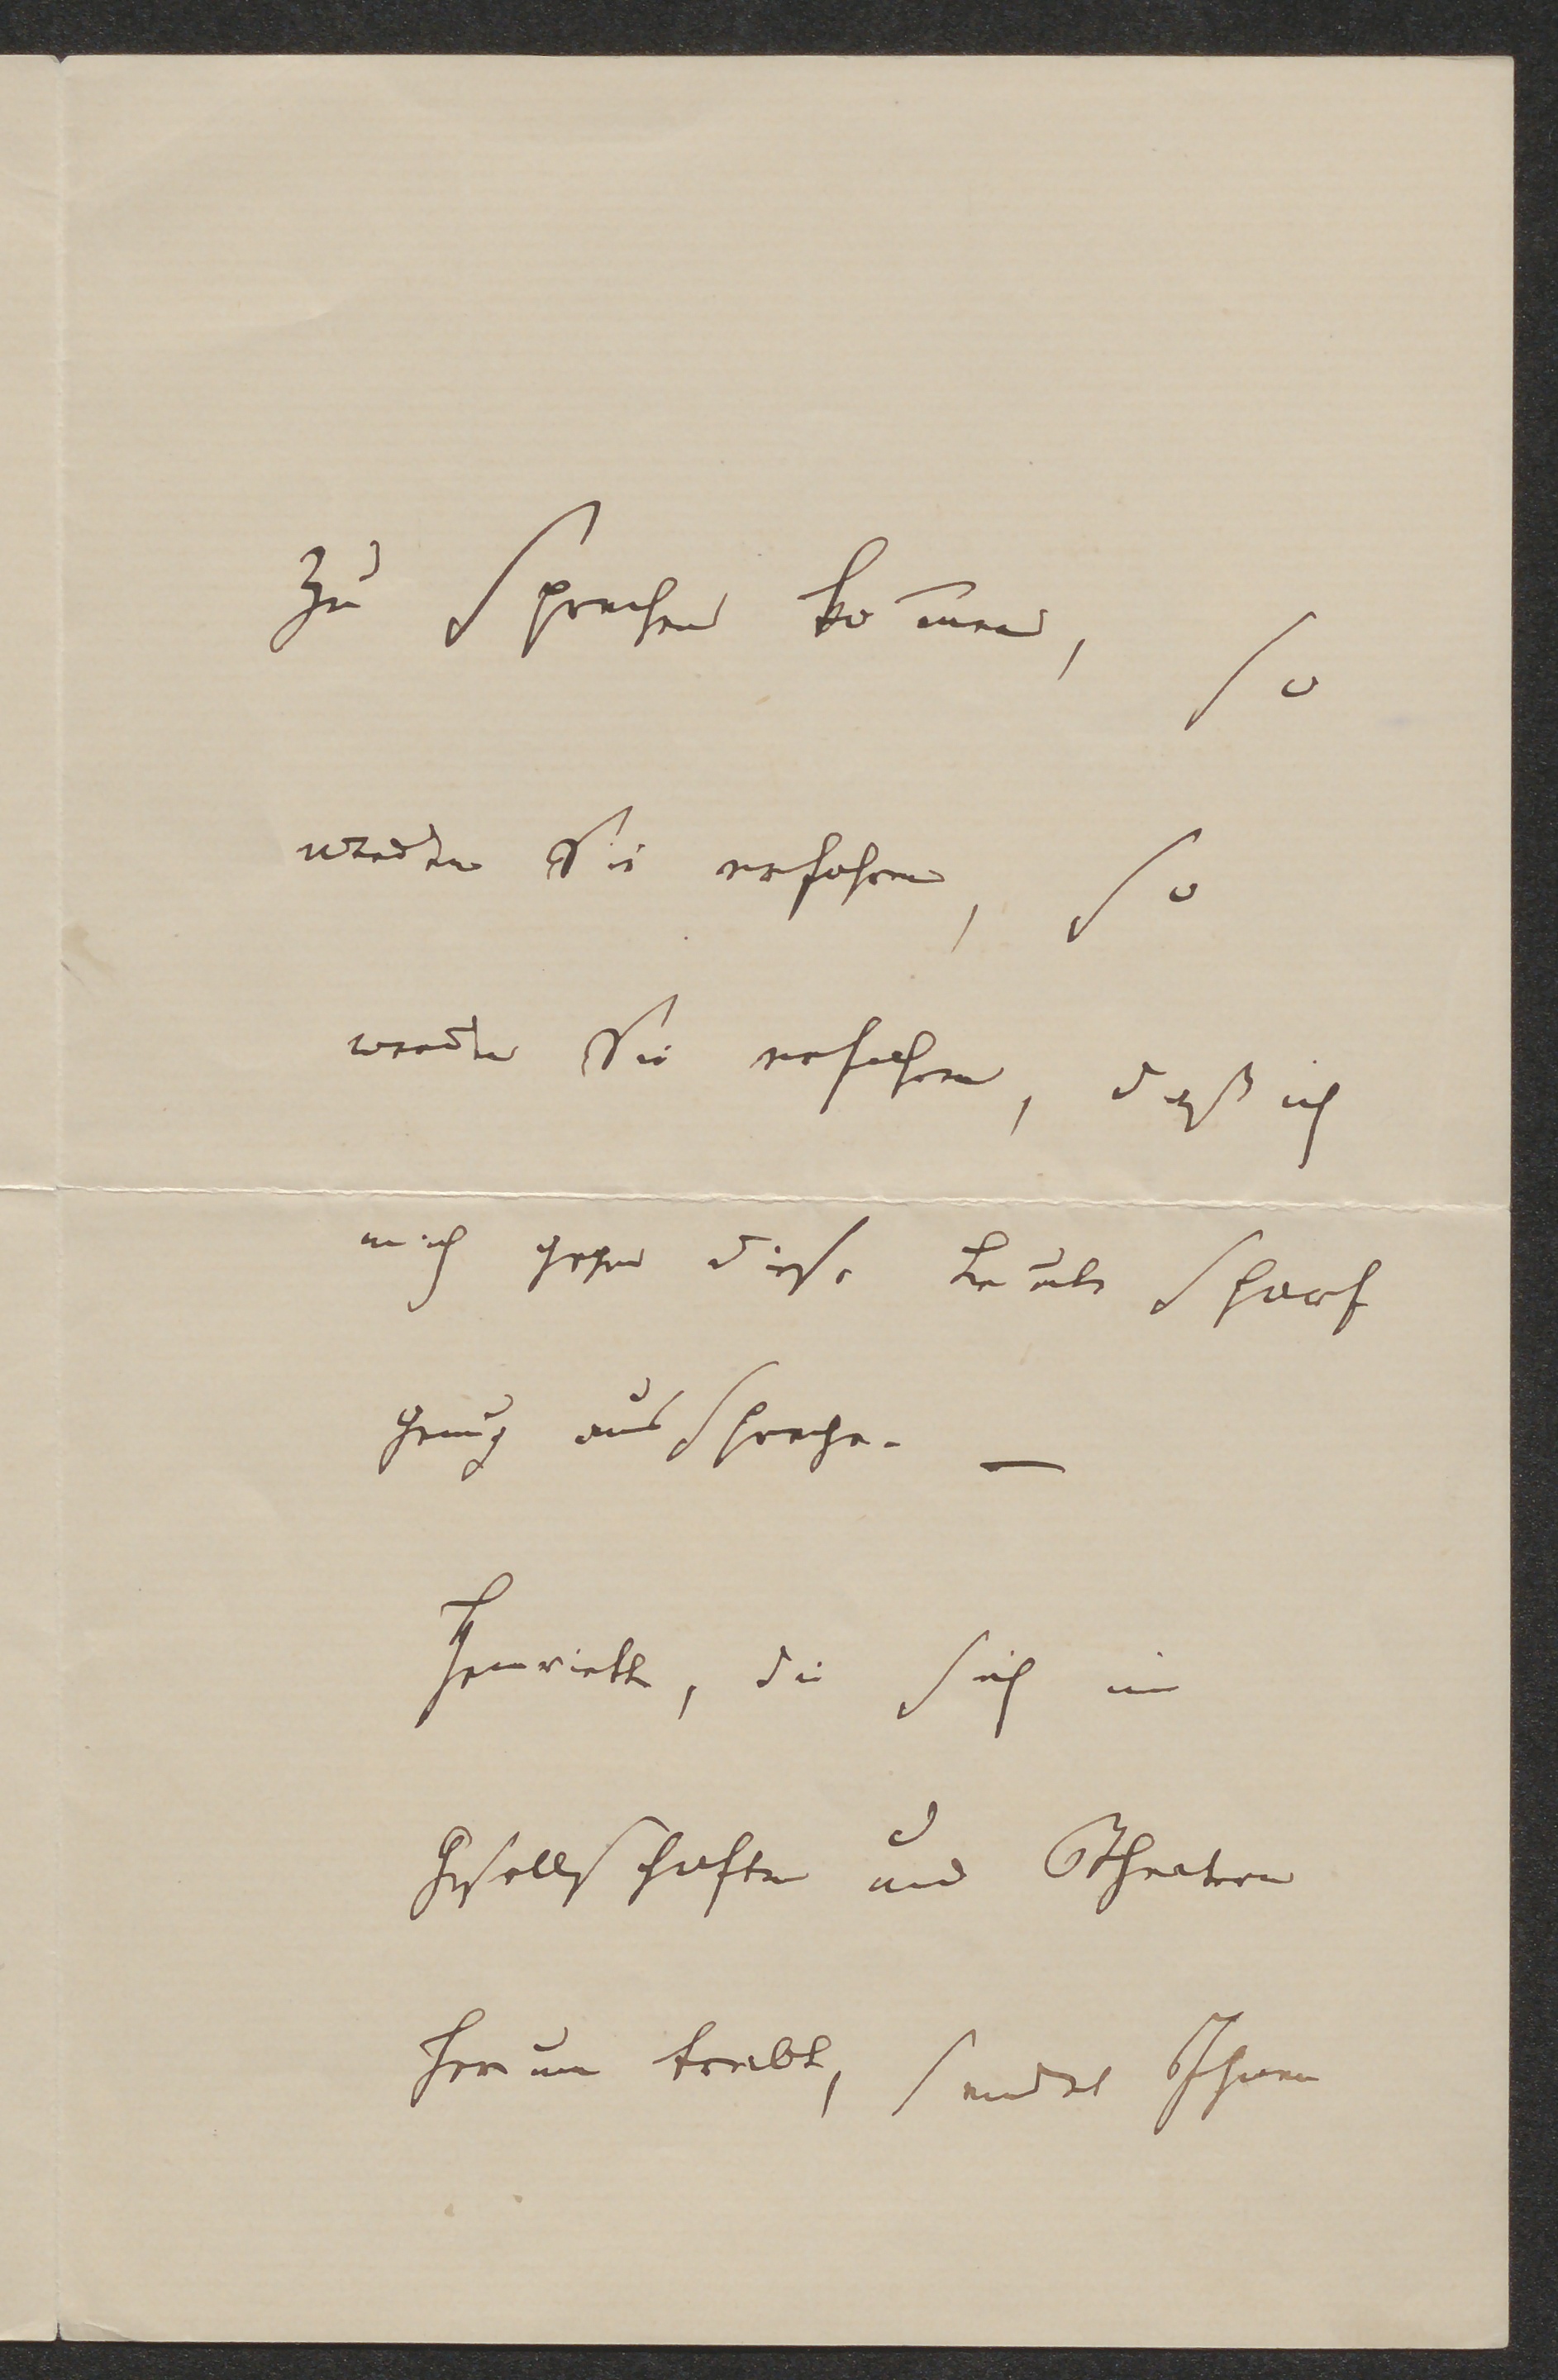 zu sprechen kom̅en, so
werden Sie erfahren, so
werden Sie erfahren, daß ich
mich gegen diese Leute scharf
genug ausspreche. —
Henriette, die sich in
Gesellschaften und Theatern
herum treibt, sendet Ihnen